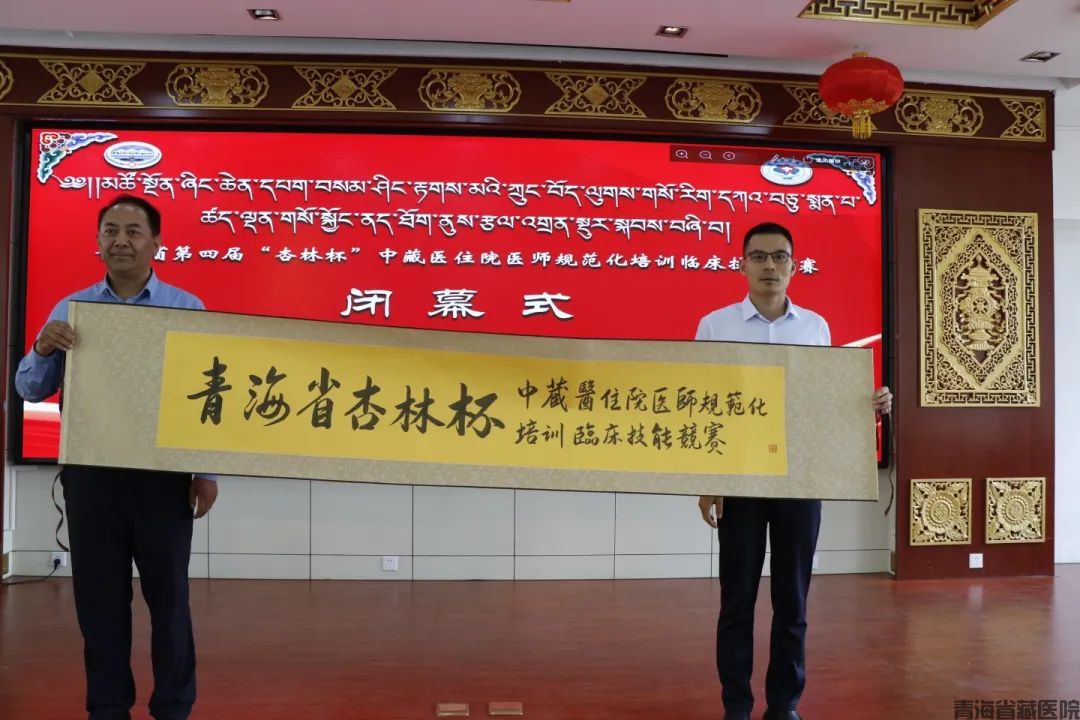 ༄༅།།མཚོ་སྔོན་ཞིང་ཆེན་དཔག་བསམ་ཤིང་རྟགས་མའི་ཀྲུང་བོད་ལུགས་གསོ་རིག་དཀའ་བཅུ་སྨན་པ་
ཚད་ལྡན་གསོ་སྐྱོང་ནད་ཐོག་ནུས་རྩལ་འགྲན་སྡུར་སྐབས་བཞི་བ།
省第四届“杏林杯”中藏医住院医师规范化培训临床技 赛
闭幕式
青海省杏林杯
中藏醫住院医師規範化
培训臨床技能競賽
青海省藏医院